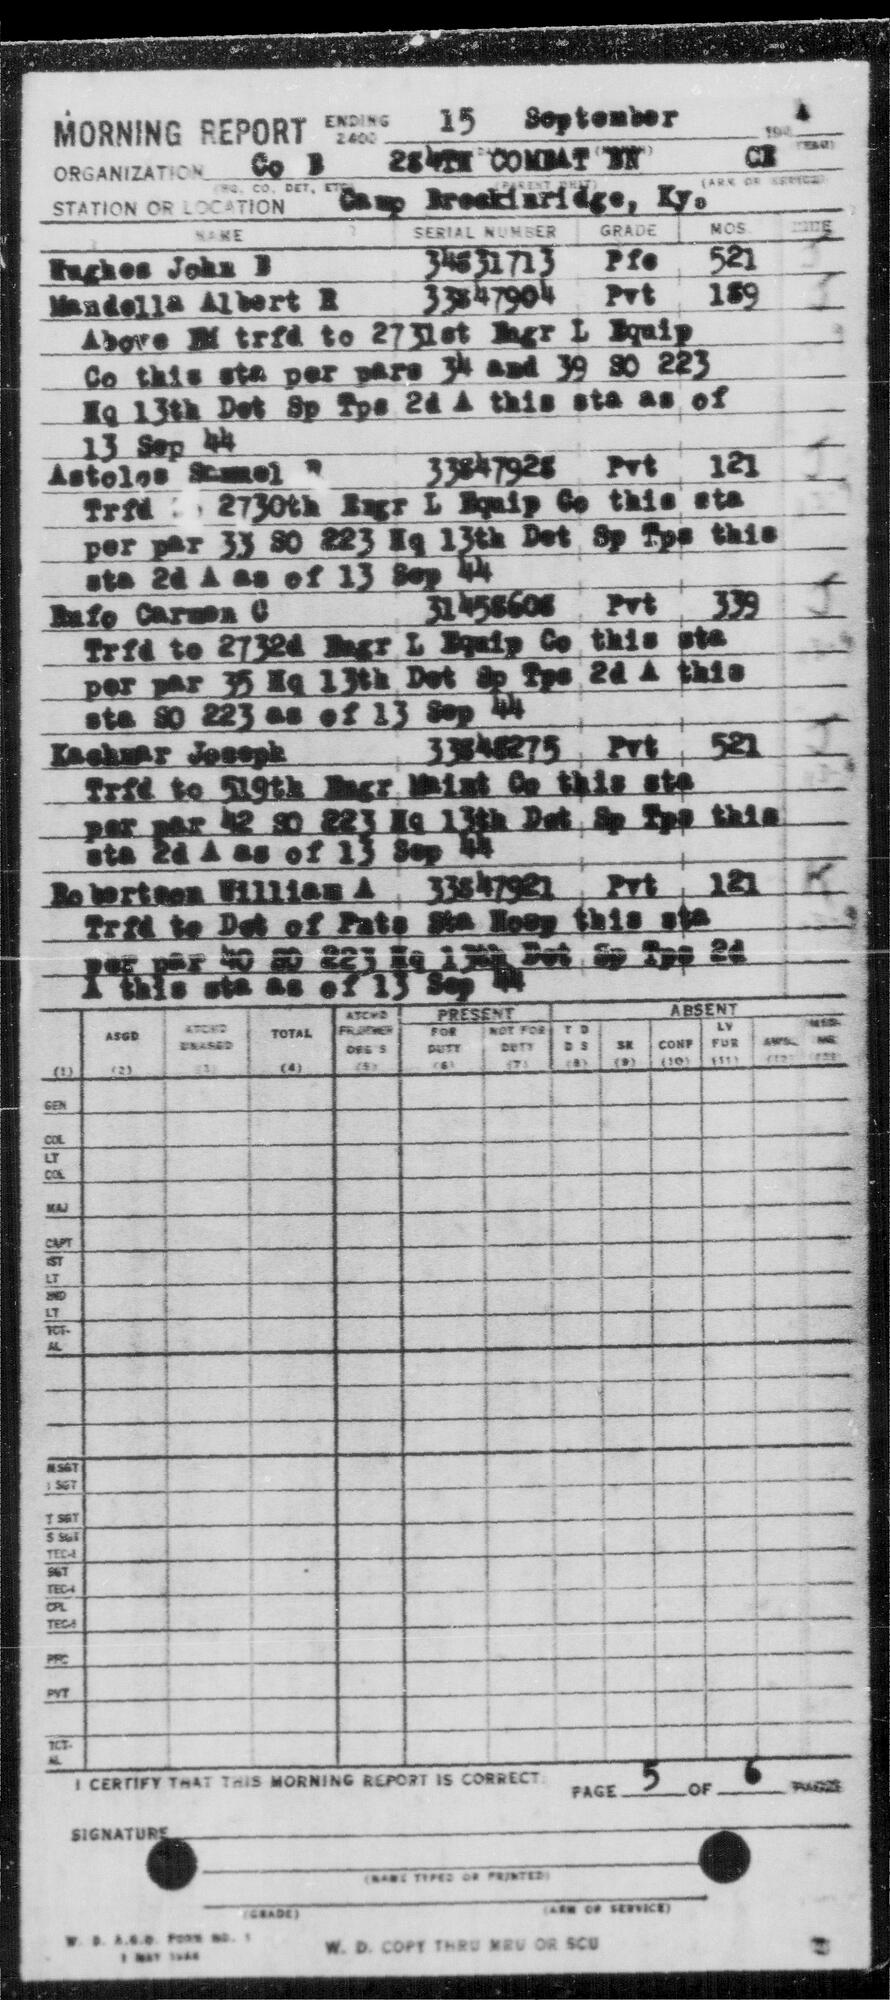 MORNING REPORT ENDING 2400 15 September 194 4
ORGANIZATION Co B 284TH COMBAT BN CE
(HQ. CO, DET, ETC) (PARENT UNIT) (ARM OR SERVICE)
STATION OR LOCATION Camp Breckinridge, Ky.
NAME SERIAL NUMBER GRADE MOS
Hughes John B 34831713 Pfc 521
Mandella Albert R 33847904 Pvt 189
Above EM trfd to 2731st Engr L Equip
Co this sta per pars 34 and 39 SO 223
Hq 13th Det Sp Tps 2d A this sta as of
13 Sep 44
Astolos Samuel 33847928 Pvt 121
Trfd 2730th Engr L Equip Co this sta
per par 33 SO 223 Hq 13th Det Sp Tps this
sta 2d A as of 13 Sep 44
Rufo Carmen C 31458608 Pvt 339
Trfd to 2732d Engr L Equip Co this sta
per par 35 Hq 13th Det Sp Tps 2d A this
sta SO 223 as of 13 Sep 44
Kachmar Joseph 33848275 Pvt 521
Trfd to 519th Engr Maint Co this sta
per par 42 SO 223 Hq 13th Det Sp Tps this
sta 2d A as of 13 Sep 44
Robertson William A 33847921 Pvt 121
Trfd to Det of Pats Sta Hosp this sta
per par 40 SO 223 Hq 13th Det Sp Tps 2d
A this sta as of 13 Sep 44
PRESENT ABSENT
ASGD ATCHD UNASGD TOTAL ATCHD FR OTHER ORG'S FOR DUTY NOT FOR DUTY T D D S SK CONF LV FUR AWOL
(1) (2) (3) (4) (5) (6) (7) (8) (9) (10) (11) (12) (13)
GEN
COL
LT
COL
MAJ
CAPT
1ST
LT
2ND
LT
TOT-
AL
M SGT
1 SGT
T SGT
S SGT
TEC-3
SGT
TEC-4
CPL
TEC-5
PFC
PVT
TOT-
AL
I CERTIFY THAT THIS MORNING REPORT IS CORRECT. PAGE 5 OF 6 PAGES
SIGNATURE
(NAME TYPED OR PRINTED)
(GRADE) (ARM OR SERVICE)
W. D. A.G.O. FORM NO. 1
W. D. COPY THRU MRU OR SCU